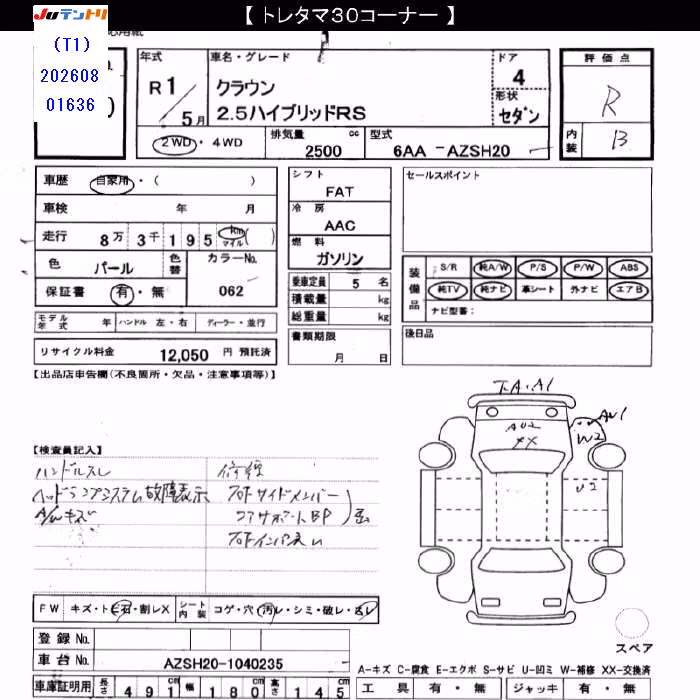 【 トレタマ３０コーナー 】
JUテントリ
(T1)
202608
01636
年式
R1/5月
車名・グレード
クラウン
2.5ハイブリッドRS
ドア
4
形状
セダン
2WD・4WD
排気量 cc
2500
型式
6AA -AZSH20
評価点
R
内装
B
車歴
自家用・( )
車検 年 月
走行
8万 3千195 km マイル ( )
色
パール
色替
カラーNo.
062
保証書
有・無
モデル年式 年
ハンドル 左・右
ディーラー・並行
リサイクル料金 12,050 円 預託済
シフト
FAT
冷房
AAC
燃料
ガソリン
乗車定員 5 名
積載量 kg
総重量 kg
書類期限
月 日
セールスポイント
装備品
S/R 純A/W P/S P/W ABS
純TV 純ナビ 革シート 外ナビ エアB
ナビ型番：
後日品
【出品店申告欄(不良箇所・欠品・注意事項等)】
【検査員記入】
ハンドルスレ
ヘッドランプシステム故障表示
A/Wキズ
修理
フロントサイドメンバー
コアサポートBP
A1
AU2
XX
AU1
W2
U2
FW キズ・ト 石・割レX
シート内装 コゲ・穴・汚レ・シミ・破レ・スレ
登録No.
車台No. AZSH20-1040235
車庫証明用 長さ 491cm 幅 180cm 高さ 145cm
スペア
A-キズ C-腐食 E-エクボ S-サビ U-凹ミ W-補修 XX-交換済
工具 有・無 ジャッキ 有・無